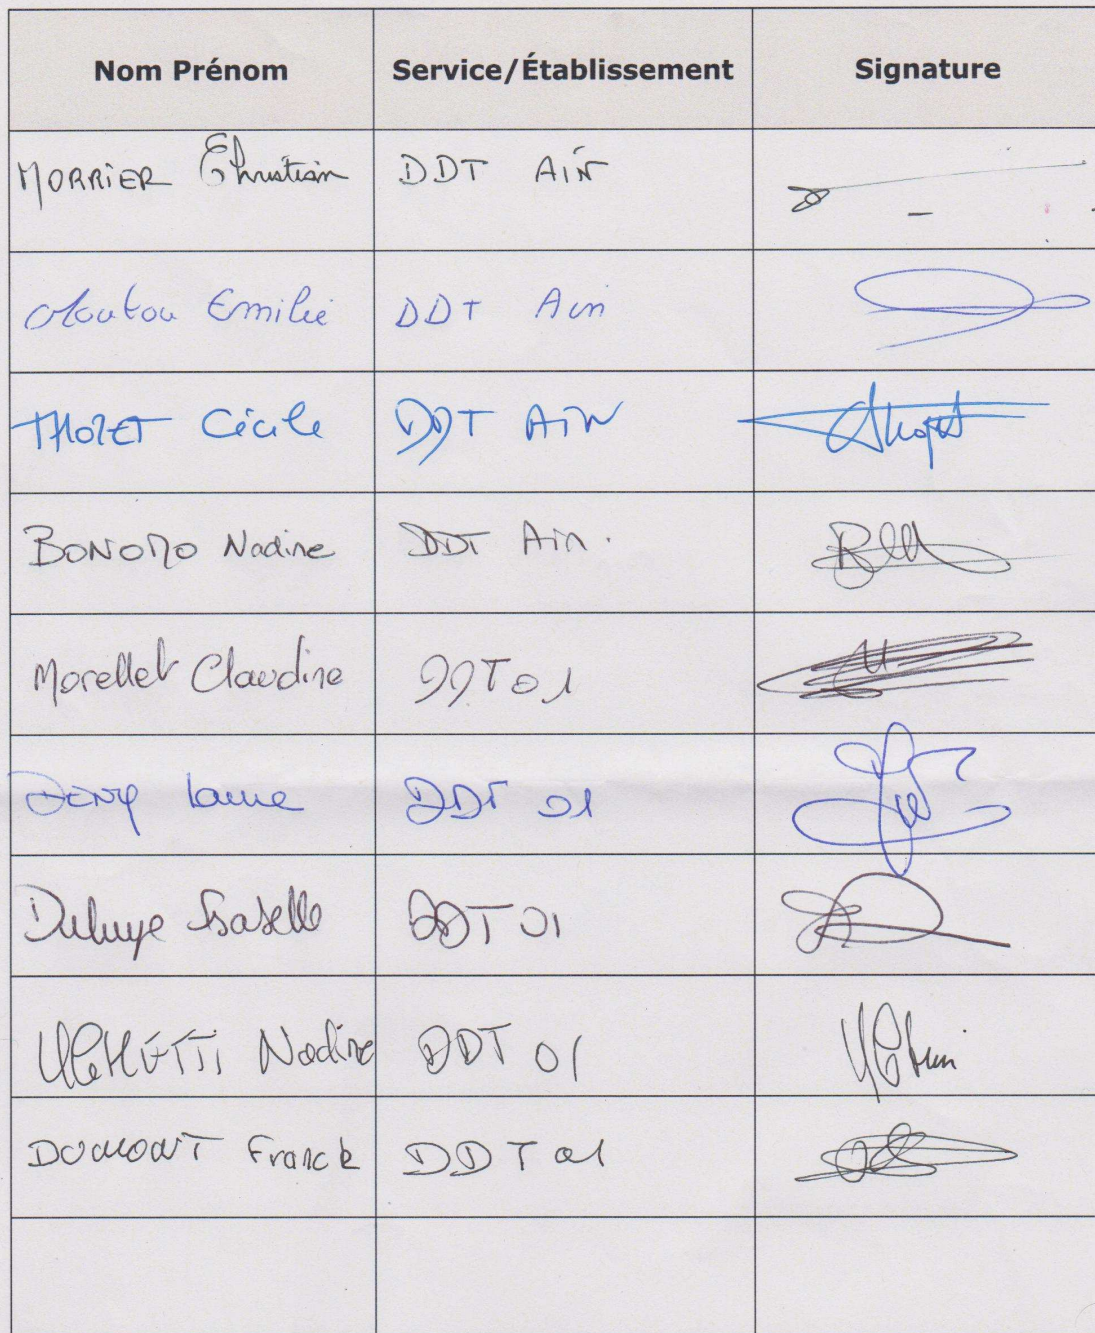 Nom Prénom Service/Établissement Signature
MORRIER Christian DDT AiN
Moutou Emilie DDT Ain
THOZET Cécile DDT AiN
BONOMO Nadine DDT Ain.
Morellet Claudine DDT 01
Deny Laure DDT 01
Isabelle DDT 01
Nadine DDT 01
DUMONT Franck DDT 01